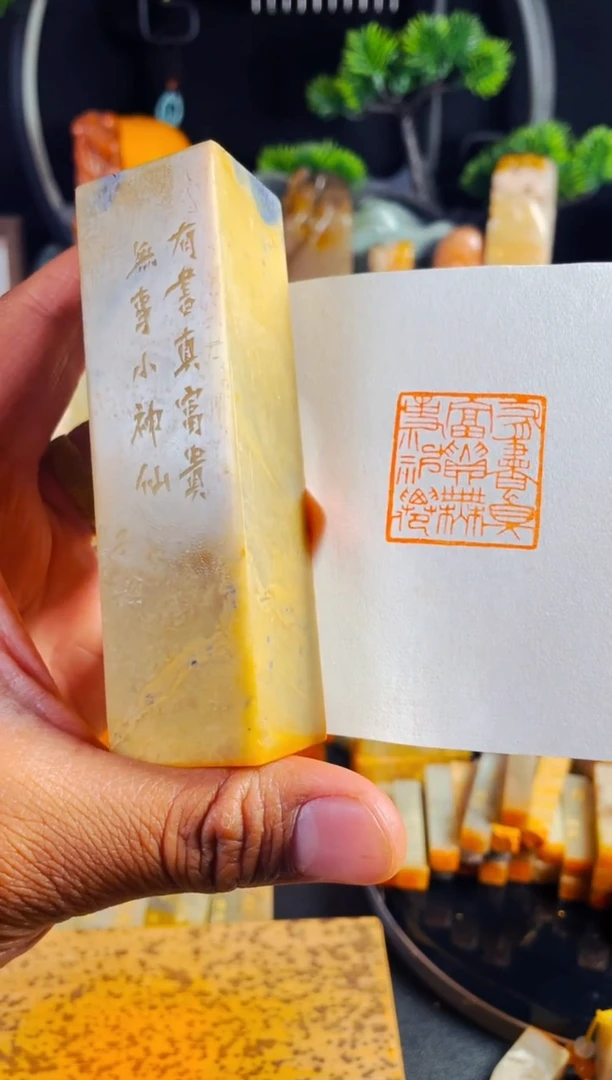 有書真富貴
無事小神仙
有書真
富貴無
事小神僊